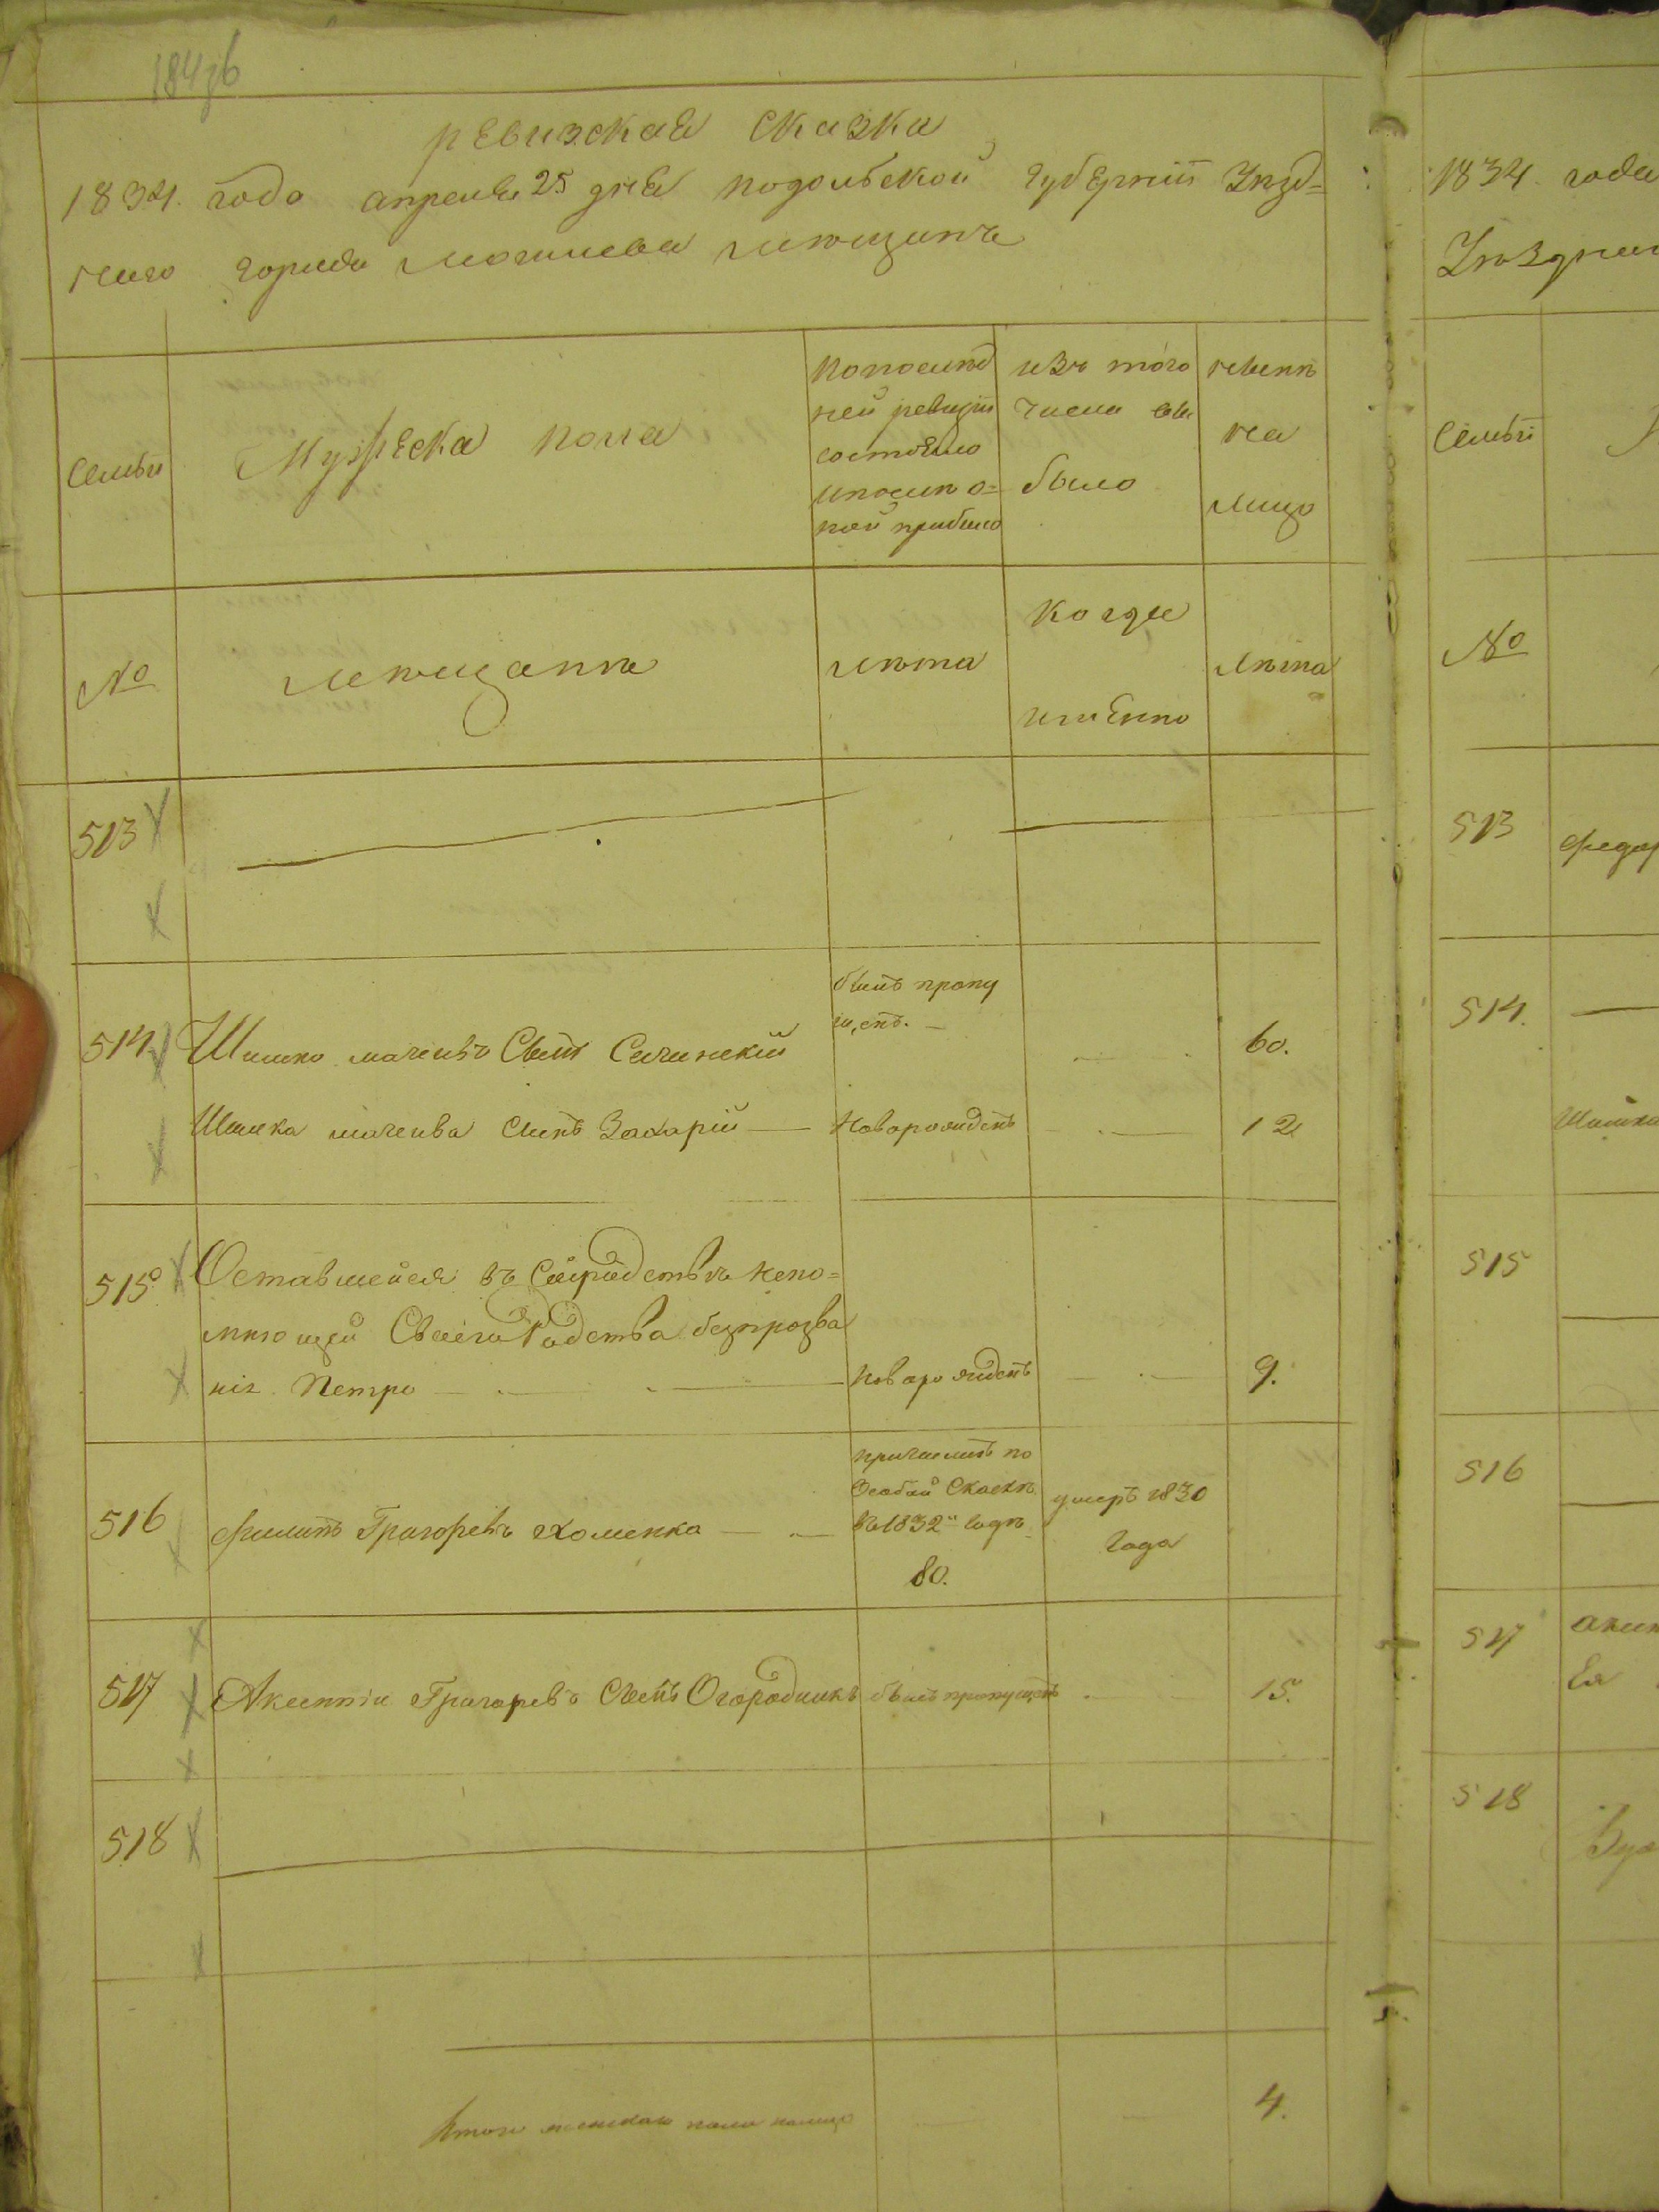 ревизская сказка
1834. года апреля 25 дня подольской губернии Уѣзд=
наго города могилева мещанъ
Семьи
Мужеска пола
по послѣд
ней ревизіи
состояло
и послѣ о=
ной прибыло
изъ того
числа вы
было
нынѣ
на
лицо
№
мещанѣ
лѣта
когда
именно
лѣта
513
514.
былъ пропу
щенъ.
сынъ
60.
сынъ Захарій
новорожденъ
12
515
Оставшейся въ непо=
мнющей Своего Родства безпрозва
нія Петро
новорожденъ
9.
516
Филипъ Григорьевъ Хоменко
причисленъ по
особой Сказкѣ
въ 1832м годѣ
80.
умеръ 1830
года
517
Аксентій Григорьевъ Сынъ Огородникъ
былъ пропущенъ
15.
518
Итого пола налицо
4.
1834 года
Уѣзднаг
Семьи
№
513
Федор
514.
515
516
517
Ея
518